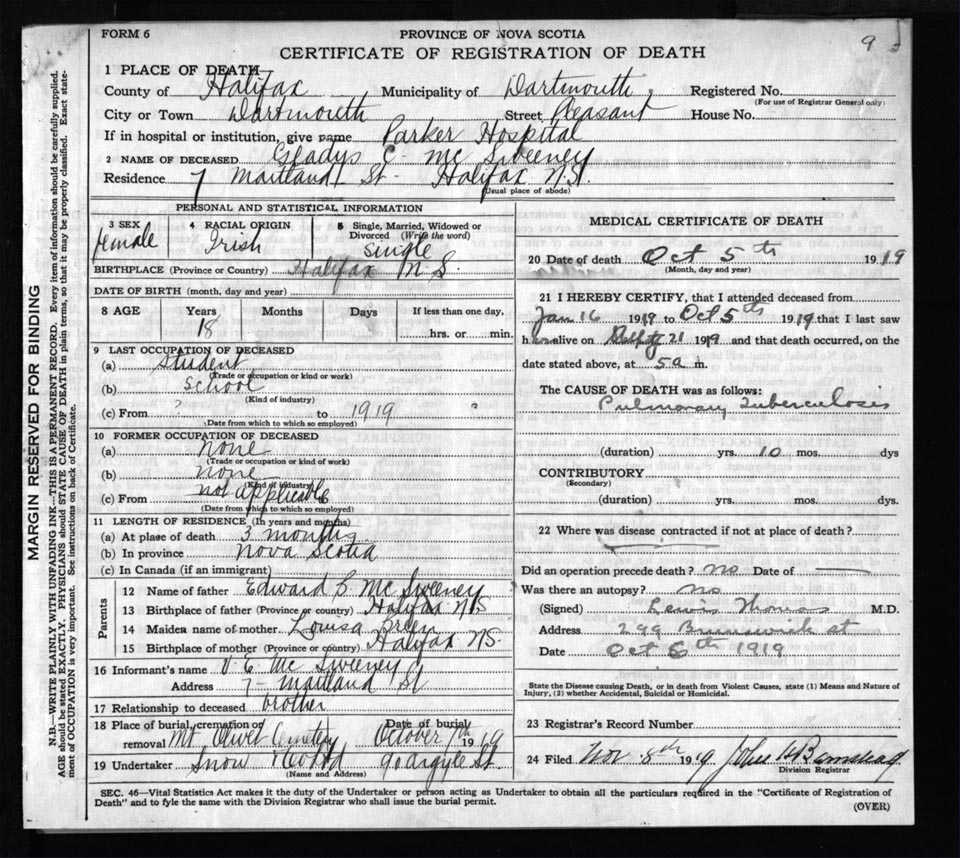 FORM 6
PROVINCE OF NOVA SCOTIA
9
CERTIFICATE OF REGISTRATION OF DEATH
MARGIN RESERVED FOR BINDING
N.B.—WRITE PLAINLY WITH UNFADING INK—THIS IS A PERMANENT RECORD. Every item of information should be carefully supplied.
AGE should be stated EXACTLY. PHYSICIANS should STATE CAUSE OF DEATH in plain terms, so that it may be properly classified. Exact state-
ment of OCCUPATION is very important. See instructions on back of Certificate.
1 PLACE OF DEATH
County of Halifax Municipality of Dartmouth Registered No.
(For use of Registrar General only)
City or Town Dartmouth Street Pleasant House No.
If in hospital or institution, give name Parker Hospital
2 NAME OF DECEASED Gladys C. McSweeney
Residence 7 Maitland St - Halifax N.S.
(Usual place of abode)
PERSONAL AND STATISTICAL INFORMATION
3 SEX female
4 RACIAL ORIGIN Irish
5 Single, Married, Widowed or Divorced (Write the word) Single
BIRTHPLACE (Province or Country) Halifax N.S.
DATE OF BIRTH (month, day and year)
8 AGE Years 18 Months Days If less than one day, hrs. or min.
9 LAST OCCUPATION OF DECEASED
(a) Student
(Trade or occupation or kind of work)
(b) School
(Kind of industry)
(c) From ? to 1919
(Date from which to which so employed)
10 FORMER OCCUPATION OF DECEASED
(a) none
(Trade or occupation or kind of work)
(b) none
(Kind of industry)
(c) From not applicable
(Date from which to which so employed)
11 LENGTH OF RESIDENCE (In years and months)
(a) At place of death 3 months
(b) In province Nova Scotia
(c) In Canada (if an immigrant)
Parents
12 Name of father Edward B McSweeney
13 Birthplace of father (Province or country) Halifax NS
14 Maiden name of mother Louisa
15 Birthplace of mother (Province or country) Halifax NS.
16 Informant's name McSweeney
Address 7 - Maitland St
17 Relationship to deceased brother
18 Place of burial, cremation or removal Mt Olivet Cemetery Date of burial October 7th 1919
19 Undertaker Snow 90 Argyle St.
(Name and Address)
MEDICAL CERTIFICATE OF DEATH
20 Date of death Oct 5th 1919
(Month, day and year)
21 I HEREBY CERTIFY, that I attended deceased from
Jan 16 1919 to Oct 5th 1919 that I last saw
h alive on 21 1919 and that death occurred, on the
date stated above, at 5 a m.
The CAUSE OF DEATH was as follows:
Pulmonary Tuberculosis
(duration) yrs. 10 mos. dys
CONTRIBUTORY
(Secondary)
(duration) yrs. mos. dys.
22 Where was disease contracted if not at place of death?
Did an operation precede death? no Date of
Was there an autopsy? no
(Signed) Lewis Thomas M.D.
Address 299 Brunswick st
Date Oct 6th 1919
State the Disease causing Death, or in death from Violent Causes, state (1) Means and Nature of
Injury, (2) whether Accidental, Suicidal or Homicidal.
23 Registrar's Record Number
24 Filed Nov. 8th 1919 John H Barnstead
Division Registrar
SEC. 46—Vital Statistics Act makes it the duty of the Undertaker or person acting as Undertaker to obtain all the particulars required in the "Certificate of Registration of
Death" and to fyle the same with the Division Registrar who shall issue the burial permit.
(OVER)